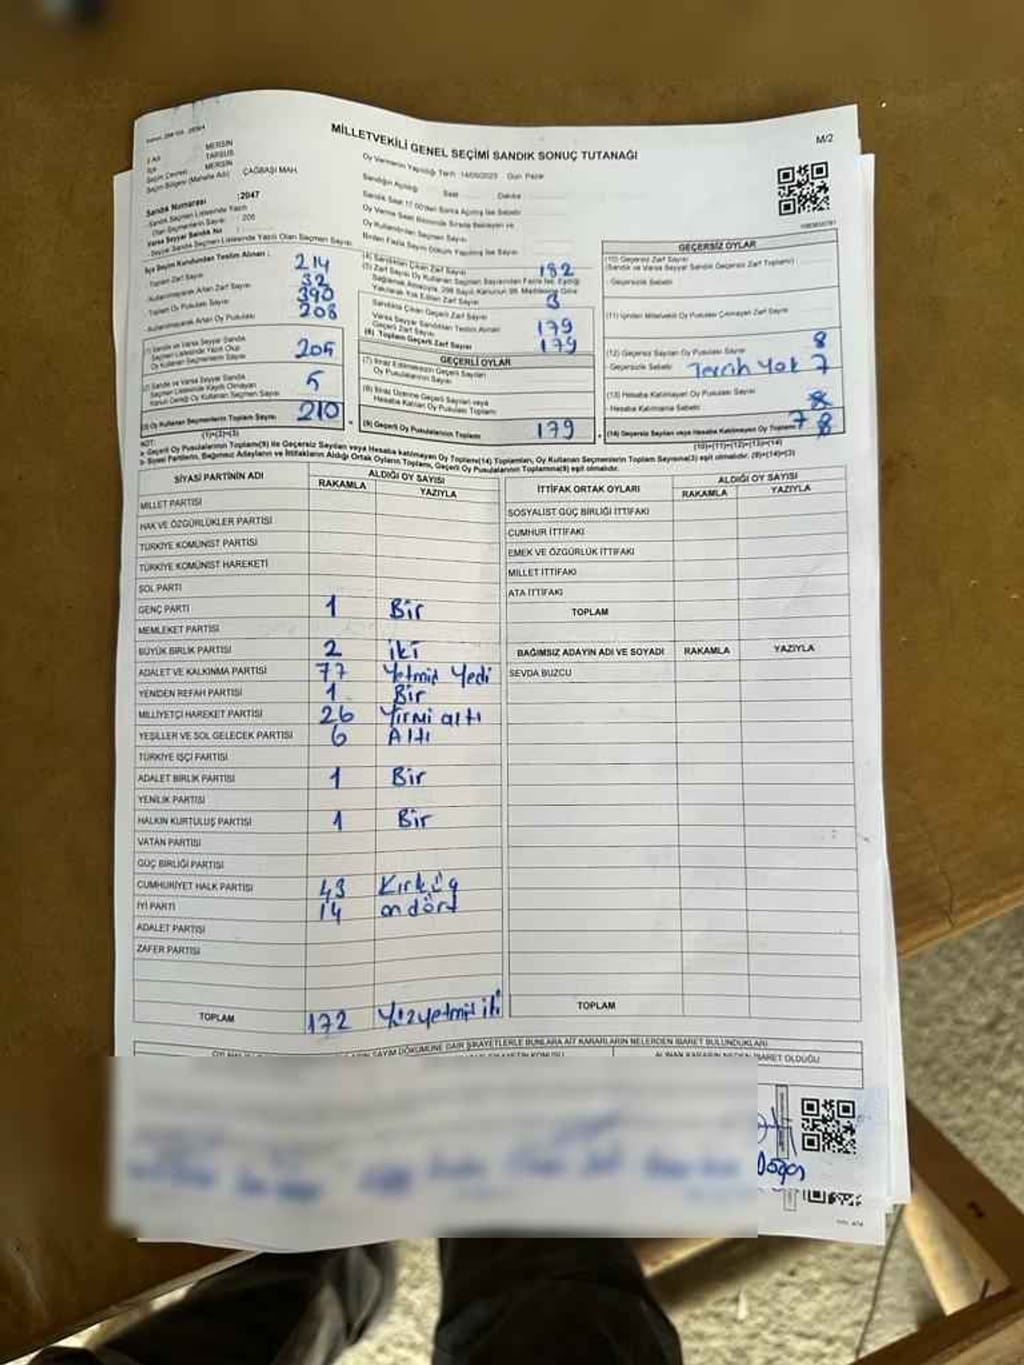 MİLLETVEKİLİ GENEL SEÇİMİ SANDIK SONUÇ TUTANAĞI
M/2
MERSİN
TARSUS
MERSİN
ÇAĞBAŞI MAH.
Oy Vermenin Yapıldığı Tarih : 14/05/2023 Gün: Pazar
Sandık Numarası : 2047
Sandık Seçmen Listesinde Yazılı
Olan Seçmenlerin Sayısı : 206
Varsa Seyyar Sandık No
İlçe Seçim Kurulundan Teslim Alınan :
Toplam Zarf Sayısı 214
Kullanılmayarak Artan Zarf Sayısı 32
Toplam Oy Pusulası Sayısı 390
Kullanılmayarak Artan Oy Pusulası 208
(1) Sandık ve Varsa Seyyar Sandık
Seçmen Listesinde Yazılı Olup
Oy Kullanan Seçmenlerin Sayısı 205
(2) Sandık ve Varsa Seyyar Sandık
Seçmen Listesinde Kayıtlı Olmayan
Kanun Gereği Oy Kullanan Seçmen Sayısı 5
(3) Oy Kullanan Seçmenlerin Toplam Sayısı 210
(1)+(2)=(3)
(4) Sandıktan Çıkan Zarf Sayısı 182
Yakılarak Yok Edilen Zarf Sayısı 3
Sandıkta Çıkan Geçerli Zarf Sayısı 179
(6) Toplam Geçerli Zarf Sayısı 179
GEÇERLİ OYLAR
(7) İtiraz Edilmeksizin Geçerli Sayılan
Oy Pusulalarının Sayısı
(8) İtiraz Üzerine Geçerli Sayılan veya
Hesaba Katılan Oy Pusulası Toplamı
(9) Geçerli Oy Pusulalarının Toplamı 179
GEÇERSİZ OYLAR
(10) Geçersiz Zarf Sayısı
(Sandık ve Varsa Seyyar Sandık Geçersiz Zarf Toplamı)
Geçersizlik Sebebi
(11) İçinden Milletvekili Oy Pusulası Çıkmayan Zarf Sayısı
(12) Geçersiz Sayılan Oy Pusulası Sayısı 8
Geçersizlik Sebebi Tercih Yok 7
(13) Hesaba Katılmayan Oy Pusulası Sayısı 8
Hesaba Katılmama Sebebi
(14) Geçersiz Sayılan veya Hesaba Katılmayan Oy Toplamı 7 8
(10)+(11)+(12)+(13)=(14)
NOT:
a- Geçerli Oy Pusulalarının Toplamı(9) ile Geçersiz Sayılan veya Hesaba katılmayan Oy Toplamı(14) Toplamları, Oy Kullanan Seçmenlerin Toplam Sayısına(3) eşit olmalıdır. (9)+(14)=(3)
b- Siyasi Partilerin, Bağımsız Adayların ve İttifakların Aldığı Ortak Oyların Toplamı, Geçerli Oy Pusulalarının Toplamına(9) eşit olmalıdır.
SİYASİ PARTİNİN ADI ALDIĞI OY SAYISI
RAKAMLA YAZIYLA
MİLLET PARTİSİ
HAK VE ÖZGÜRLÜKLER PARTİSİ
TÜRKİYE KOMÜNİST PARTİSİ
TÜRKİYE KOMÜNİST HAREKETİ
SOL PARTİ
GENÇ PARTİ 1 Bir
MEMLEKET PARTİSİ
BÜYÜK BİRLİK PARTİSİ 2 iki
ADALET VE KALKINMA PARTİSİ 77 Yetmiş Yedi
YENİDEN REFAH PARTİSİ 1 Bir
MİLLİYETÇİ HAREKET PARTİSİ 26 Yirmi altı
YEŞİLLER VE SOL GELECEK PARTİSİ 6 Altı
TÜRKİYE İŞÇİ PARTİSİ
ADALET BİRLİK PARTİSİ 1 Bir
YENİLİK PARTİSİ
HALKIN KURTULUŞ PARTİSİ 1 Bir
VATAN PARTİSİ
GÜÇ BİRLİĞİ PARTİSİ
CUMHURİYET HALK PARTİSİ 43 Kırküç
İYİ PARTİ 14 on dört
ADALET PARTİSİ
ZAFER PARTİSİ
TOPLAM 172 Yüzyetmiş iki
İTTİFAK ORTAK OYLARI ALDIĞI OY SAYISI
RAKAMLA YAZIYLA
SOSYALİST GÜÇ BİRLİĞİ İTTİFAKI
CUMHUR İTTİFAKI
EMEK VE ÖZGÜRLÜK İTTİFAKI
MİLLET İTTİFAKI
ATA İTTİFAKI
TOPLAM
BAĞIMSIZ ADAYIN ADI VE SOYADI RAKAMLA YAZIYLA
SEVDA BUZCU
TOPLAM
SAYIM DÖKÜMÜNE DAİR ŞİKAYETLERLE BUNLARA AİT KARARLARIN NELERDEN İBARET BULUNDUKLARI